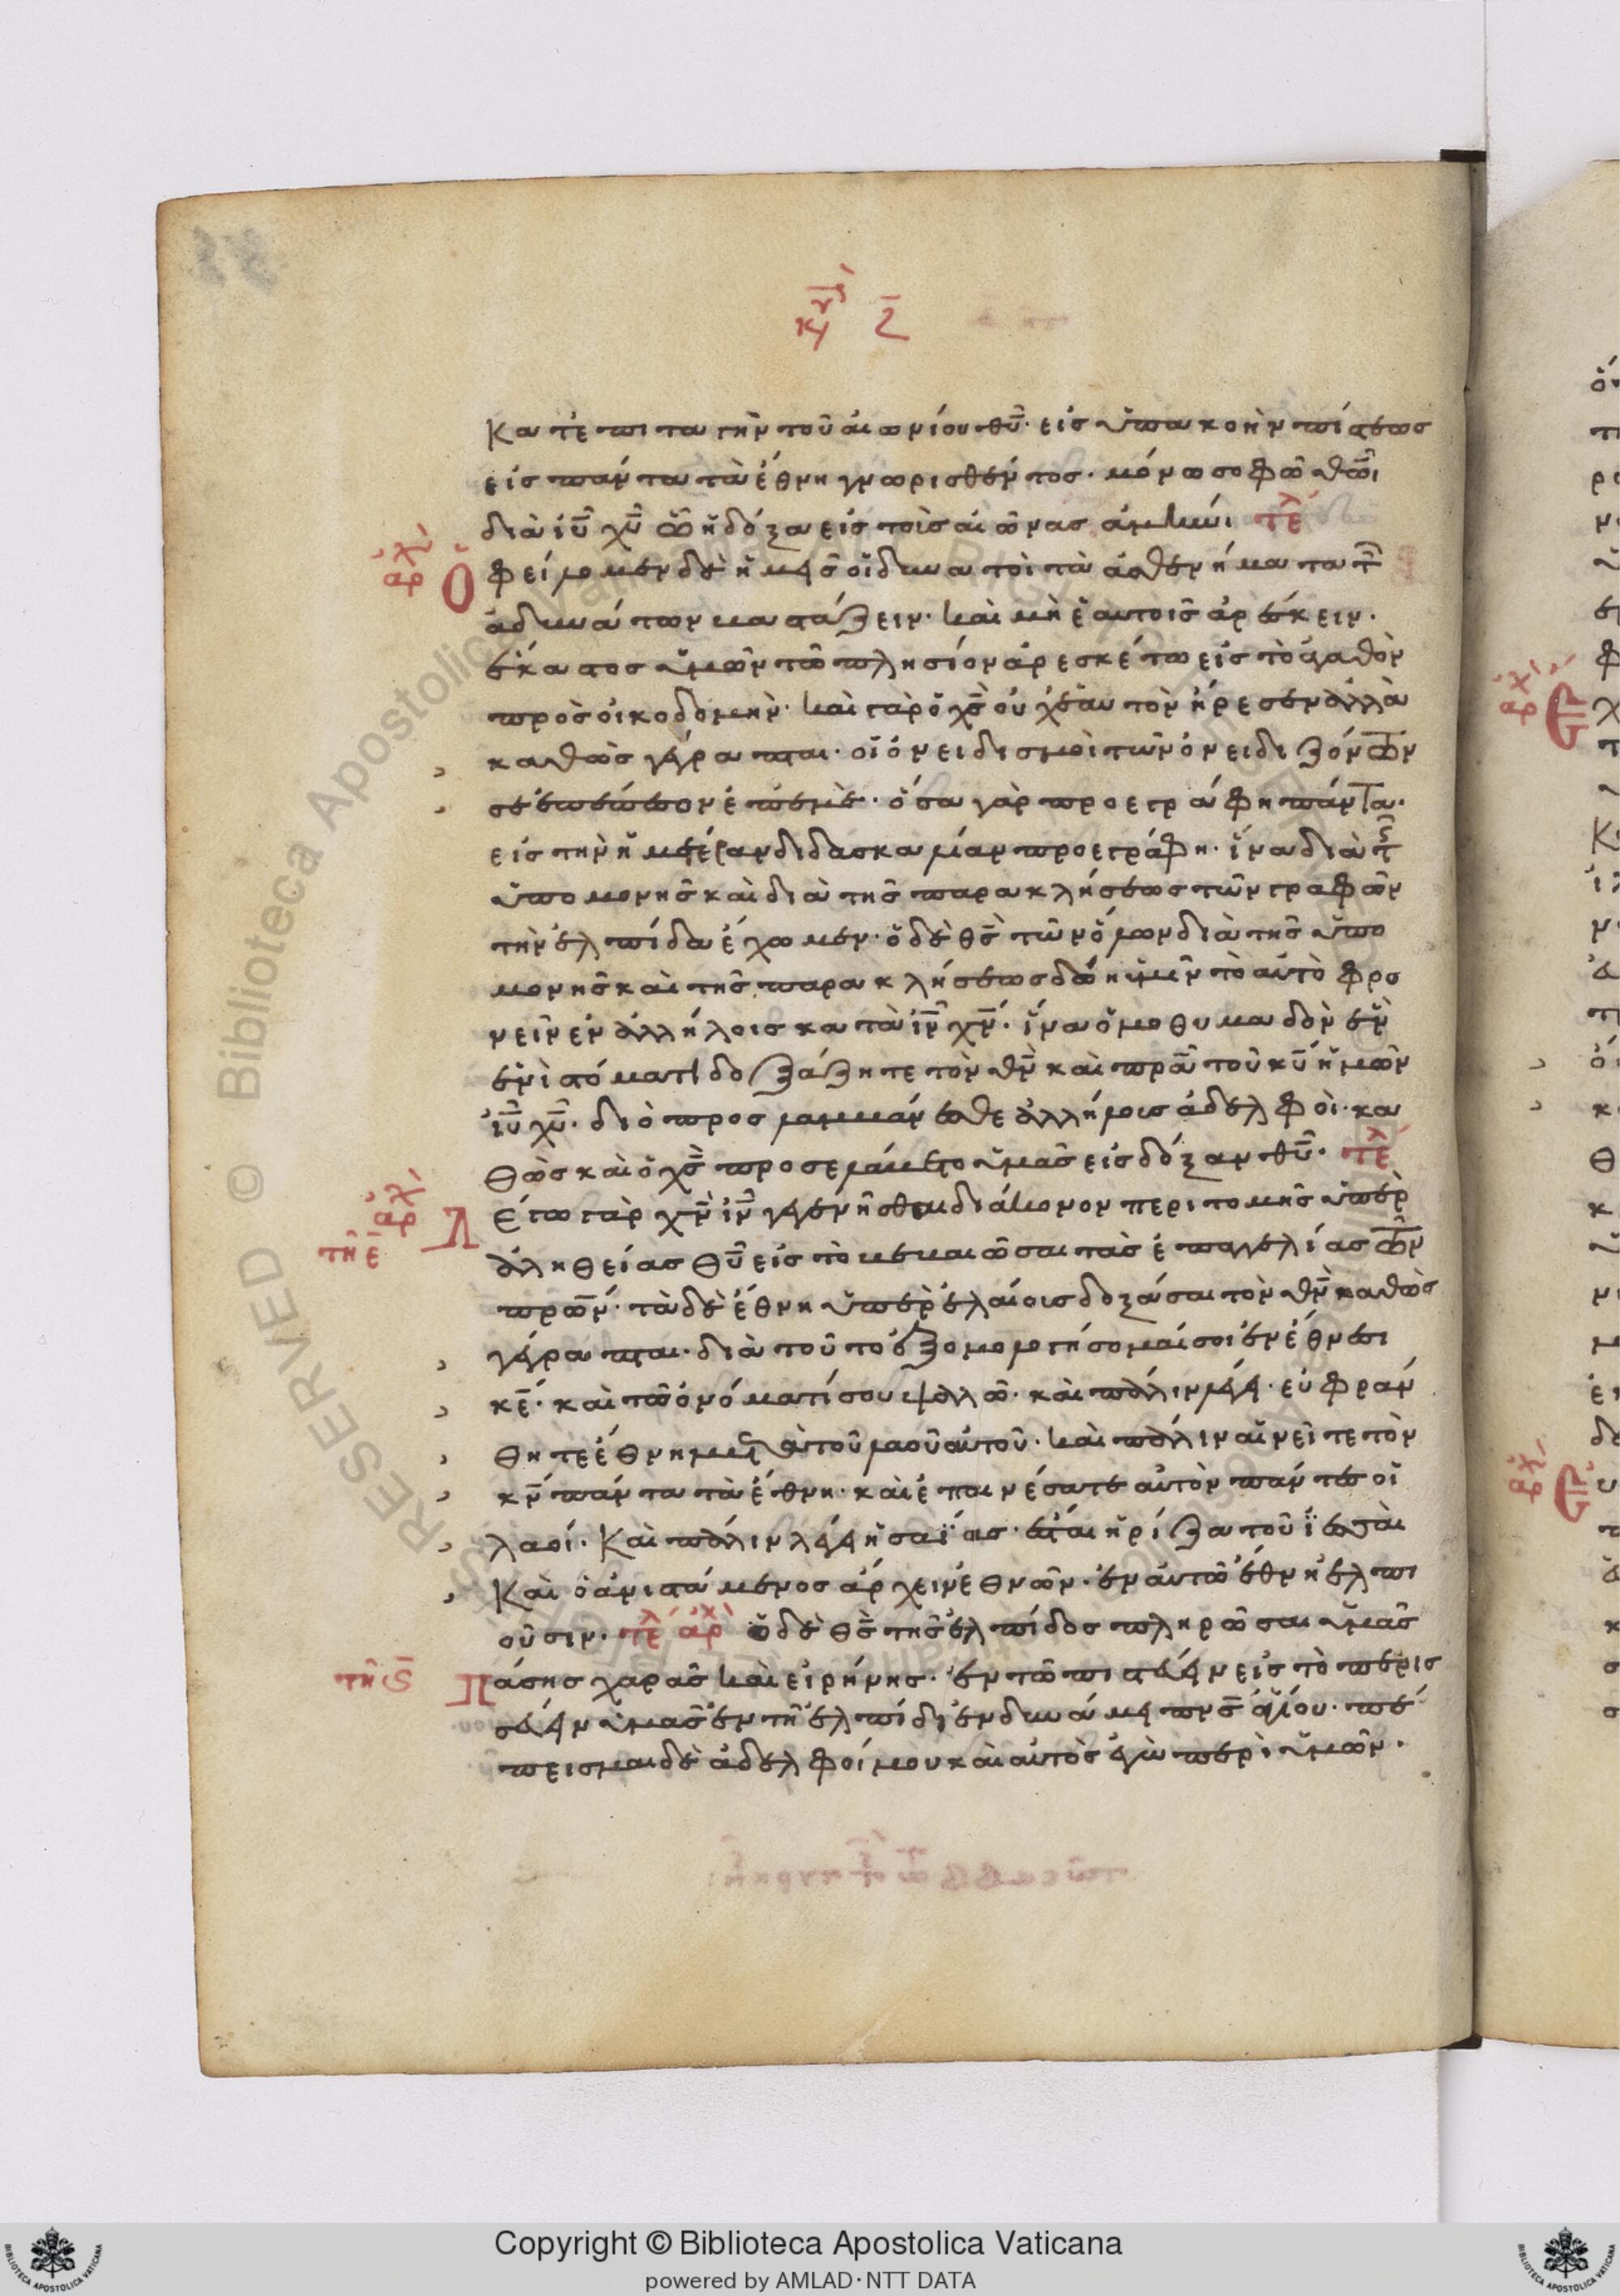 κυρι ζ
κατ ἐπιταγὴν τοῦ αἰωνίου θῦ· εἰς ὑπακοὴν πίστεως
εἰς πάντα τὰ ἔθνη γνωρισθέντος· μόνω σοφῶ θῶι
διὰ ἰῦ χῦ ὧ ἡ δόξα εἰς τοὺς αἰῶνας ἀμήν· τελ
αρχ Ὀφείλομεν δὲ ἡμεῖς οἱ δυνατοὶ τὰ ἀσθενήματα τῶν
ἀδυνάτων βαστάζειν· καὶ μὴ ἑαυτοῖς ἀρέσκειν·
ἕκαστος ὑμῶν τῶ πλησίον ἀρεσκέτω εἰς τὸ ἀγαθὸν
πρὸς οἰκοδομήν· καὶ γὰρ ὁ χς οὐχ ἑαυτὸν ἤρεσεν ἀλλὰ
καθὼς γέγραπται· οἱ ὀνειδισμοὶ τῶν ὀνειδιζόντων
σε ἐπέπεσον ἐπ ἐμέ· ὅσα γὰρ προεγράφη πάντα·
εἰς τὴν ἡμετέραν διδασκαλίαν προεγράφη· ἵνα διὰ τῆς
ὑπομονῆς καὶ διὰ τῆς παρακλήσεως τῶν γραφῶν
τὴν ἐλπίδα ἔχωμεν· ὁ δὲ θς τῆς ὑπο
μονῆς καὶ τῆς παρακλήσεως δώη ὑμῖν τὸ αὐτὸ φρο
νεῖν ἐν ἀλλήλοις κατὰ ἰν χν· ἵνα ὁμοθυμαδὸν ἐν
ἑνὶ στόματι δοξάζητε τὸν θν καὶ πρα τοῦ κῦ ἡμῶν
ἰῦ χῦ· διὸ προσλαμβάνεσθε ἀλλήλοις ἀδελφοί· κα
θὼς καὶ ὁ χς προσελάβετο ὑμᾶς εἰς δόξαν θῦ· τελ
αρχ τῆ ε Λέγω γὰρ χν ἰν γεγενῆσθαι διάκονον περιτομῆς ὑπὲρ
ἀληθείας θῦ εἰς τὸ βεβαιῶσαι τὰς ἐπαγγελίας τῶν
πρων· τὰ δὲ ἔθνη ὑπὲρ ἐλέους δοξάσαι τὸν θν καθὼς
γέγραπται· διὰ τοῦτο ἐξομολογήσομαί σοι ἐν ἔθνεσι
κε· καὶ τῶ ὀνόματί σου ψαλῶ· καὶ πάλιν λέγει· εὐφράν
θητε ἔθνη μετὰ τοῦ λαοῦ αὐτοῦ· καὶ πάλιν αἰνεῖτε τὸν
κν πάντα τὰ ἔθνη· καὶ ἐπαινέσατε αὐτὸν πάντες οἱ
λαοί· Καὶ πάλιν λέγει ἡσαΐας· ἔσται ἡ ρίζα τοῦ ἰεσσαὶ
Καὶ ὁ ἀνιστάμενος ἄρχειν ἐθνῶν· ἐν αὐτῶ ἔθνη ἐλπι
οῦσιν· τελ αρχ ὁ δὲ θς τῆς ἐλπίδος πληρῶσαι ὑμᾶς
τῆ ϛ Πάσης χαρᾶς καὶ εἰρήνης· ἐν τῶ πιστεύειν εἰς τὸ περισ
σεύειν ὑμᾶς ἐν τῆ ἐλπίδι ἐν δυνάμει πνς ἁγίου· πέ
πεισμαι δὲ ἀδελφοί μου καὶ αὐτὸς ἐγὼ περὶ ὑμῶν·
© Biblioteca Apostolica Vaticana
RESERVED
Copyright © Biblioteca Apostolica Vaticana
powered by AMLAD·NTT DATA